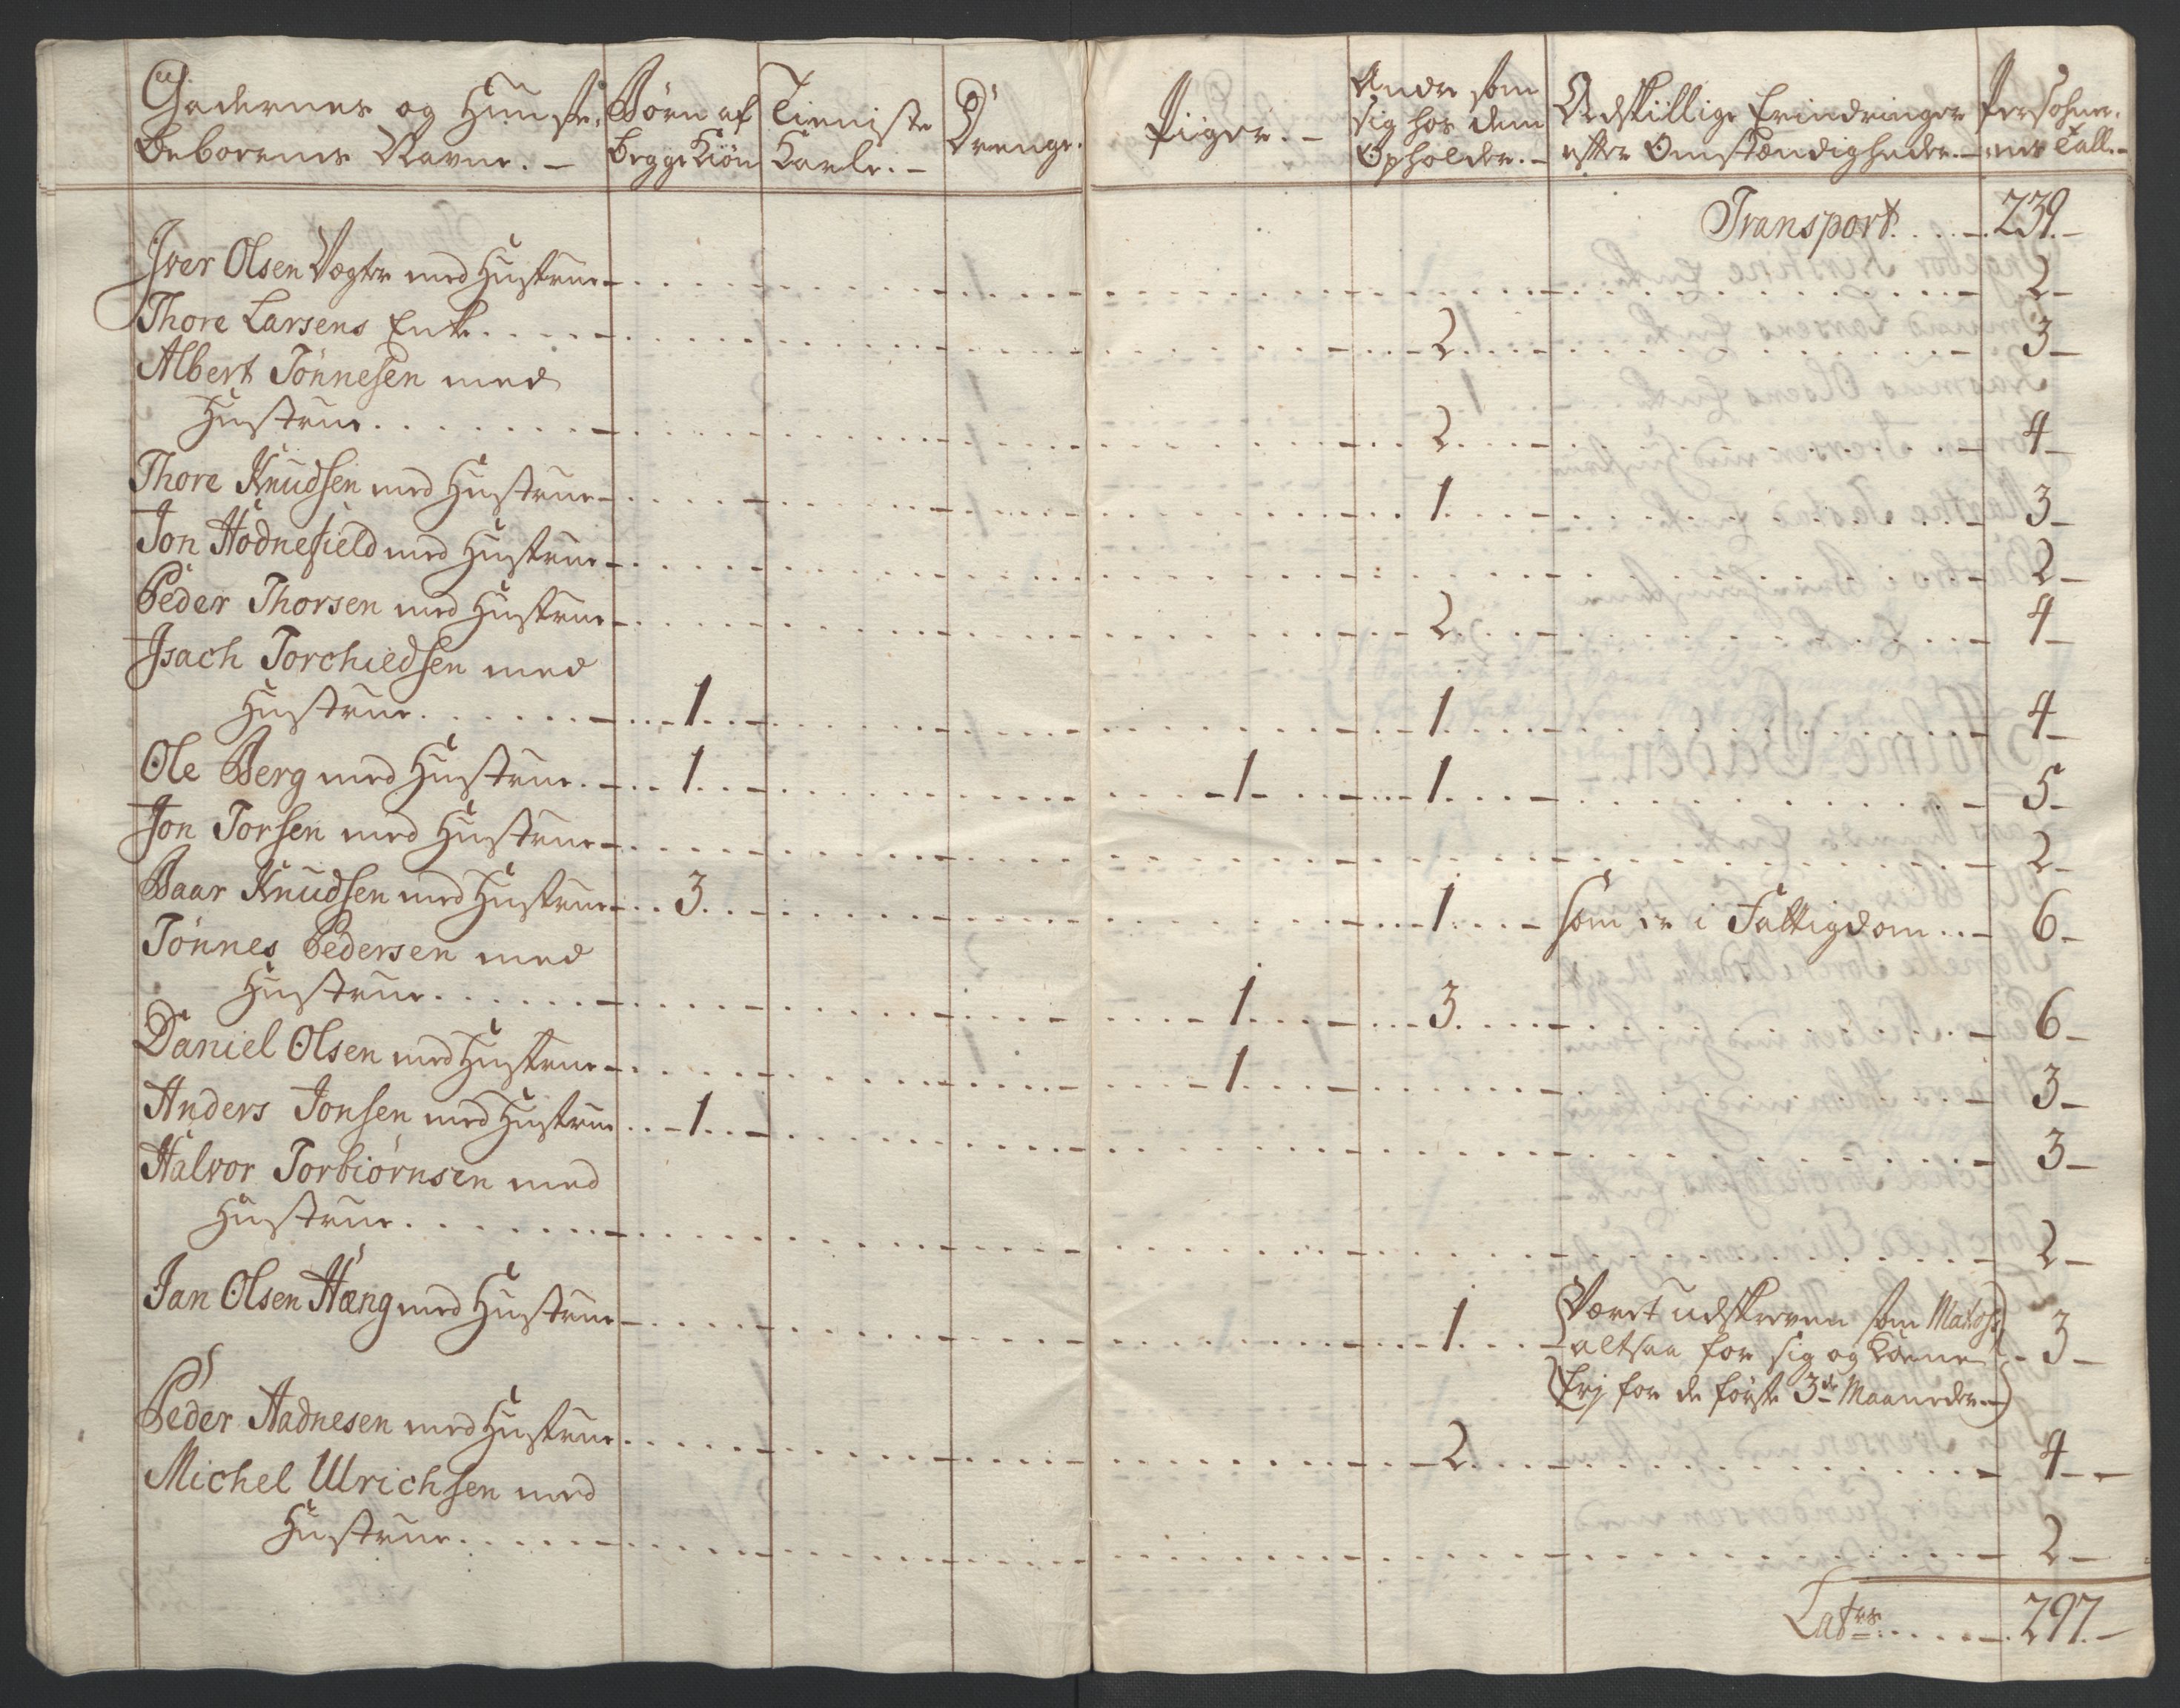 Gadernes og Huuse,
Beboernes Navne. —
Børn af
begge Kiøn
Tieniste
Karle. —
Drenge.
Piiger. —
Andre som
sig hos dem
Opholder. —
Adskillige Erindringer
efter Omstændigheder. —
Persohner,
nes Tall. —
Transport. . . . . 239. —
Iver Olsen Vægter med Hustrue — 2 —
Thore Larsens Enke. . . . . 2. . . . 3 —
Albert Tönnesen med
Hustrue. . . . . . . . 2. . . . 4 —
Thore Knudsen med Hustrue — 1. . . . 3 —
Jon Hodnefield med Hustrue — 2 —
Peder Thorsen med Hustrue — 2. . . . 4 —
Isach Torchiedsen med
Hustrue. . . . . . . 1. . . 1. . . . 4 —
Ole Berg med Hustrue. — 1. . . 1. . . 1. . . . 5 —
Jon Torsen med Hustrue — 2 —
Baar Knudsen med Hustrue — 3. . . 1. . . . som er i Fattigdom. . — 6 —
Tönnes Pedersen med
Hustrue. . . . . . . 1. . . . 3. . . . 6 —
Daniel Olsen med Hustrue — 1. . . . 3 —
Anders Jonsen med Hustrue . . 1. . . 3 —
Halvor Torbiörnsen med
Hustrue. . . . . . . . 2 —
Jan Olsen Hæng med Hustrue — 1. . . . Været udskreven som Matros
altsaa for sig og Konen . . 3 —
frj for de förste 3de Maaneder. —
Peder Aadnesen med Hustrue. . . . 2. . . . 4 —
Michel Ulrichsen med
Hustrue. . . . . . 2 —
Latus. . . . . 297. —